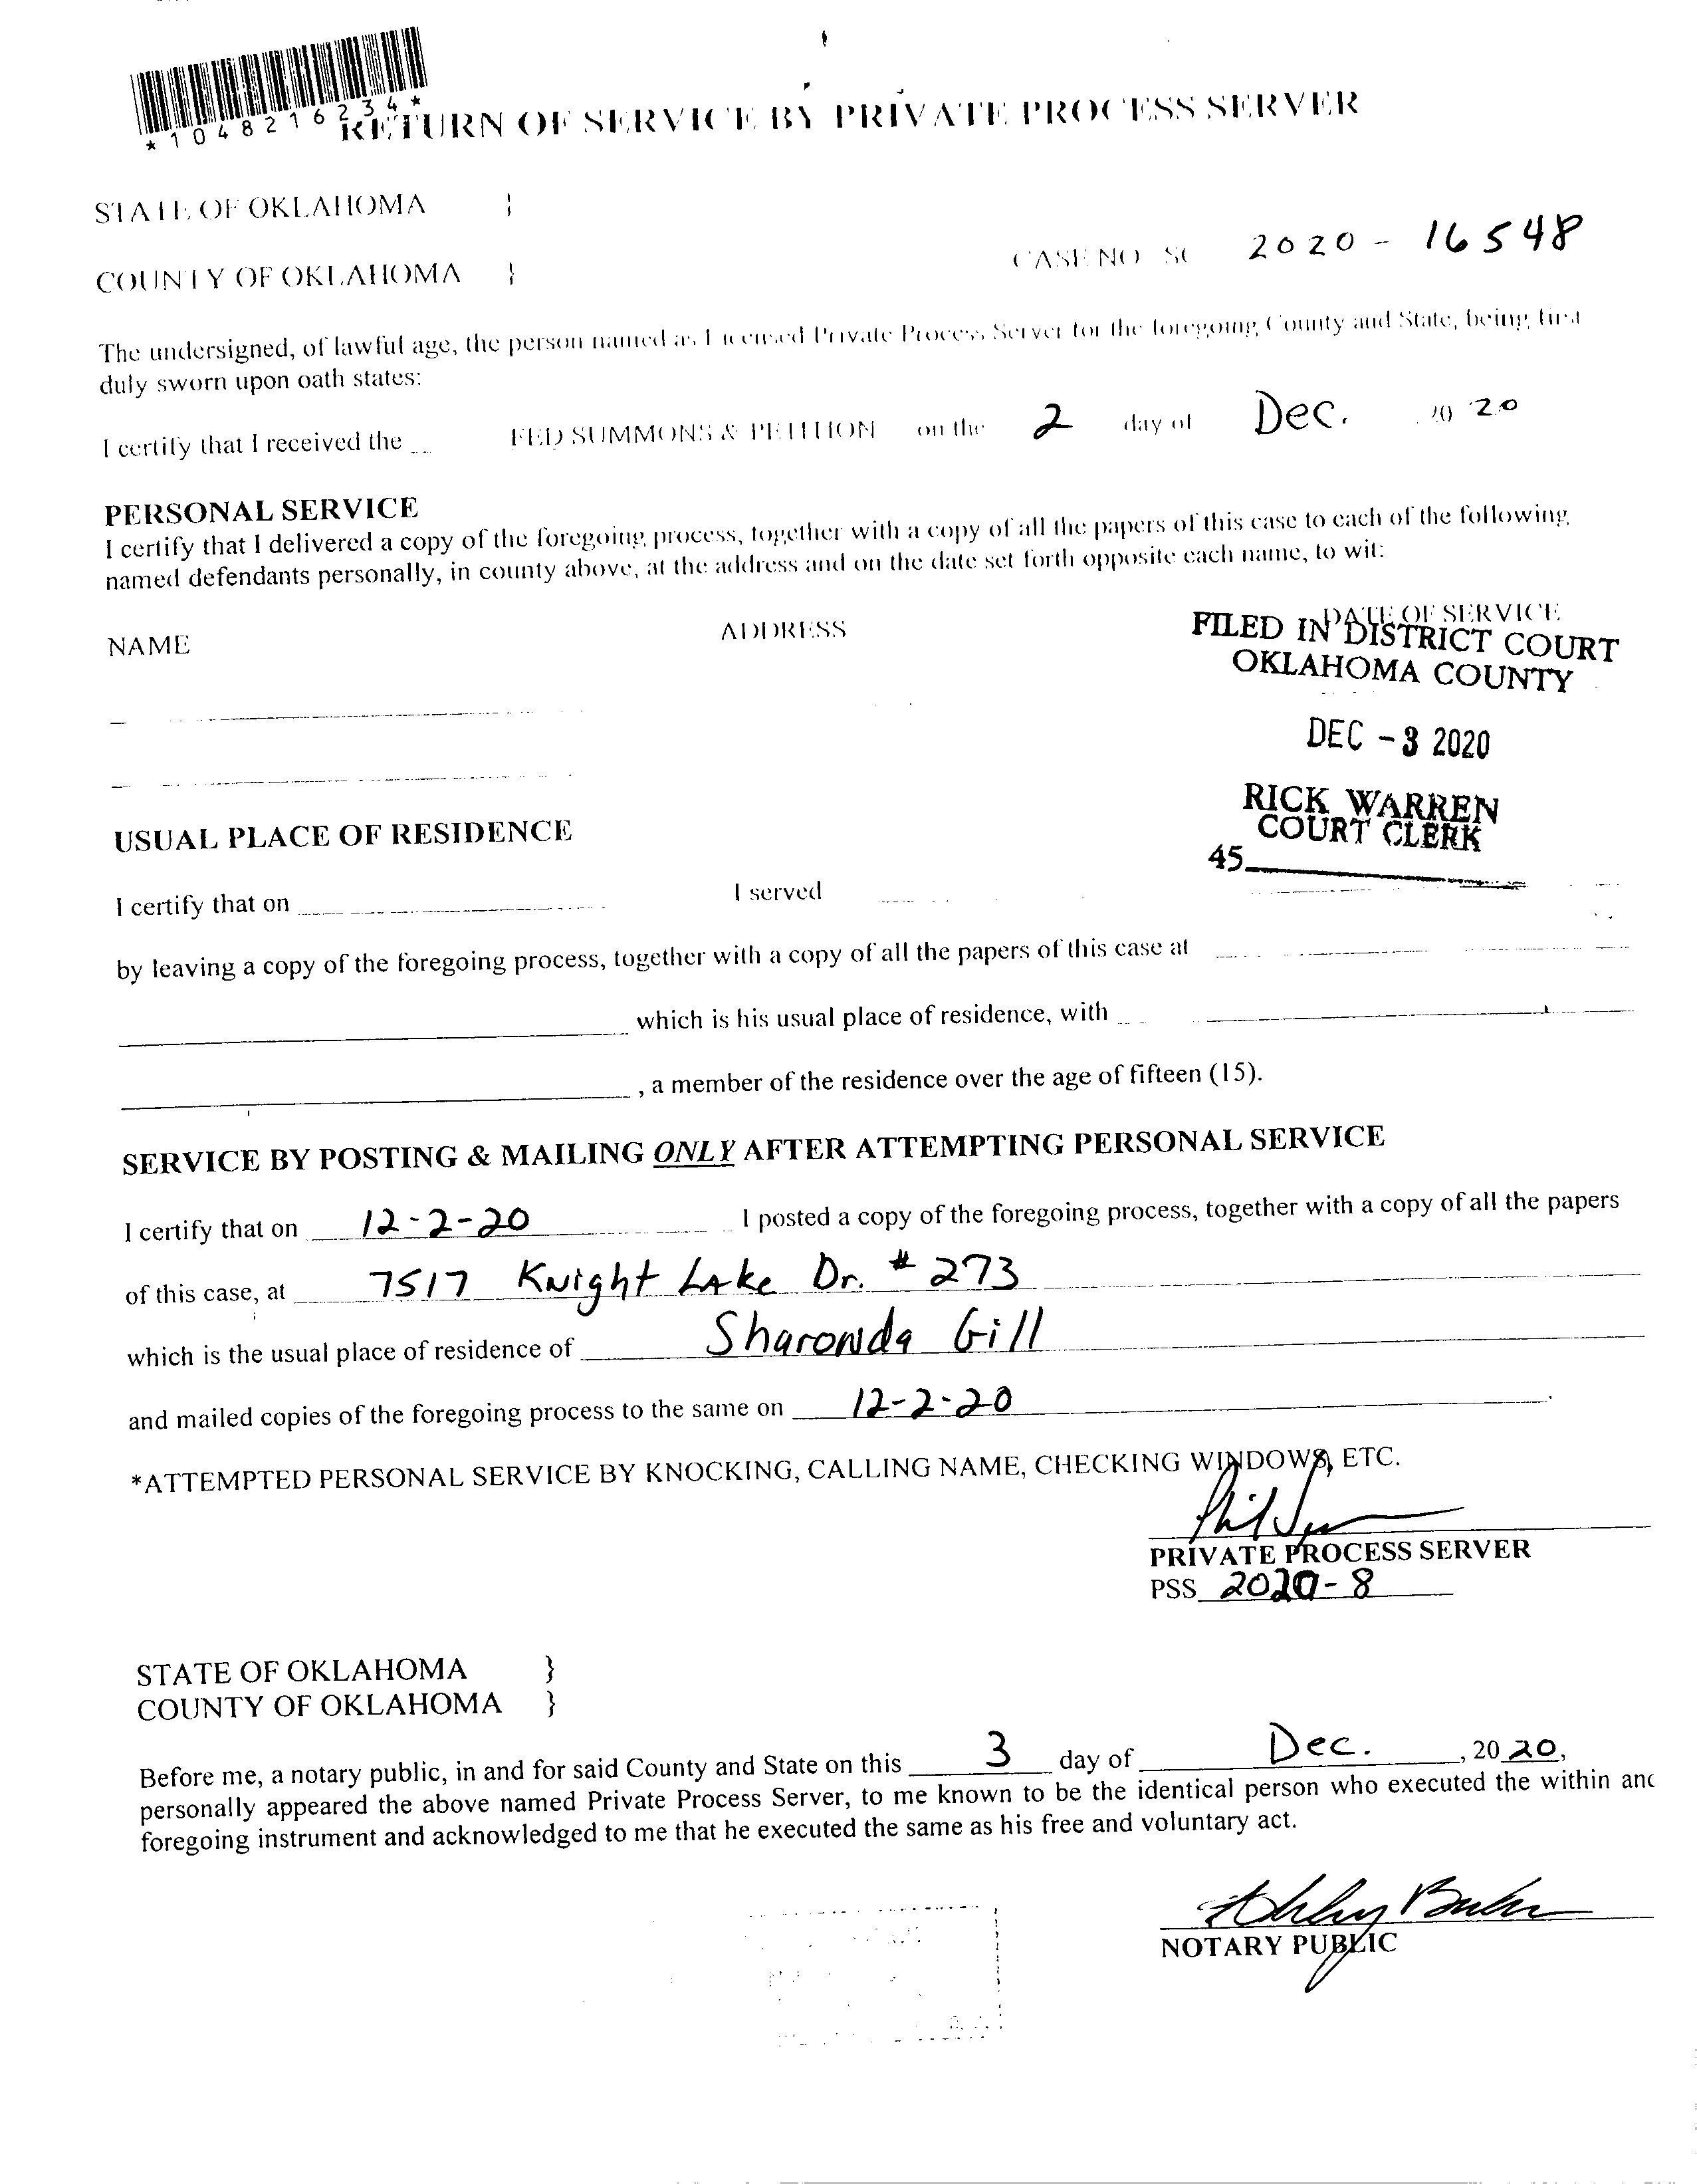 *1048216234*
RETURN OF SERVICE BY PRIVATE PROCESS SERVER
STATE OF OKLAHOMA }
CASE NO. SC 2020 - 16548
COUNTY OF OKLAHOMA }
The undersigned, of lawful age, the person named as Licensed Private Process Server for the foregoing County and State, being first
duly sworn upon oath states:
I certify that I received the FED SUMMONS & PETITION on the 2 day of Dec. 20 20
PERSONAL SERVICE
I certify that I delivered a copy of the foregoing process, together with a copy of all the papers of this case to each of the following
named defendants personally, in county above, at the address and on the date set forth opposite each name, to wit:
NAME ADDRESS DATE OF SERVICE
FILED IN DISTRICT COURT
OKLAHOMA COUNTY
DEC - 3 2020
RICK WARREN
COURT CLERK
45
USUAL PLACE OF RESIDENCE
I certify that on I served
by leaving a copy of the foregoing process, together with a copy of all the papers of this case at
which is his usual place of residence, with
, a member of the residence over the age of fifteen (15).
SERVICE BY POSTING & MAILING ONLY AFTER ATTEMPTING PERSONAL SERVICE
I certify that on 12-2-20 I posted a copy of the foregoing process, together with a copy of all the papers
of this case, at 7517 Knight Lake Dr. # 273
which is the usual place of residence of Sharonda Gill
and mailed copies of the foregoing process to the same on 12-2-20.
*ATTEMPTED PERSONAL SERVICE BY KNOCKING, CALLING NAME, CHECKING WINDOWS, ETC.
PRIVATE PROCESS SERVER
PSS 2020-8
STATE OF OKLAHOMA }
COUNTY OF OKLAHOMA }
Before me, a notary public, in and for said County and State on this 3 day of Dec., 20 20,
personally appeared the above named Private Process Server, to me known to be the identical person who executed the within and
foregoing instrument and acknowledged to me that he executed the same as his free and voluntary act.
NOTARY PUBLIC